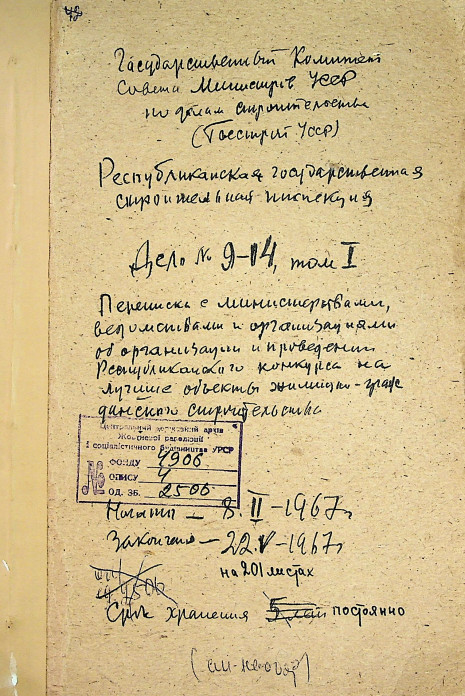 Государственный Комитет
Совета Министров УССР
по делам строительства
(Госстрой УССР)
Республиканская государственная
строительная инспекция
Дело № 9-14, том I
Переписка с министерствами,
ведомствами и организациями
об организации и проведении
Республиканского конкурса на
лучшие объекты жилищно-граж
данского строительства
Центральний державний архів
Жовтневої революції
і соціалістичного будівництва УРСР
№ ФОНДУ 4906
ОПИСУ 4
ОД. ЗБ. 2506
Начато – 8.II-1967г
Закончено – 22.V-1967г
на 201 листах
Срок хранения 5 лет постоянно